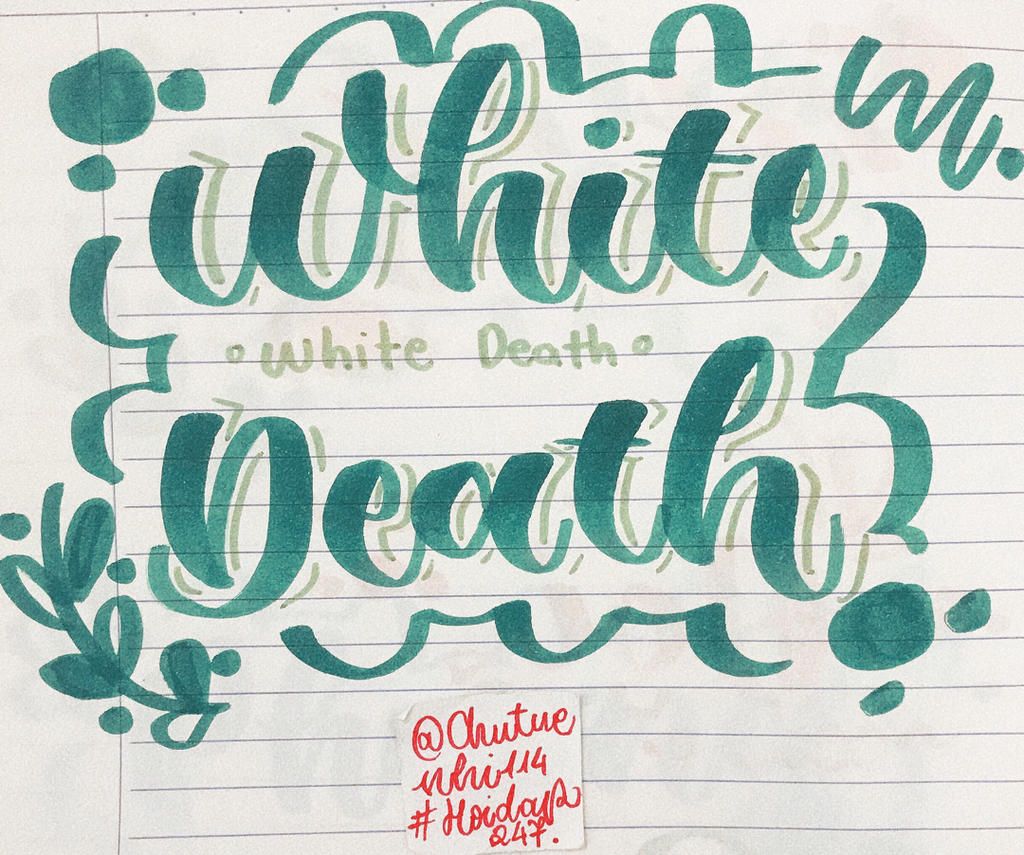 White
White Death
Death
@Chutue
nhi114
#Hoidap
247.